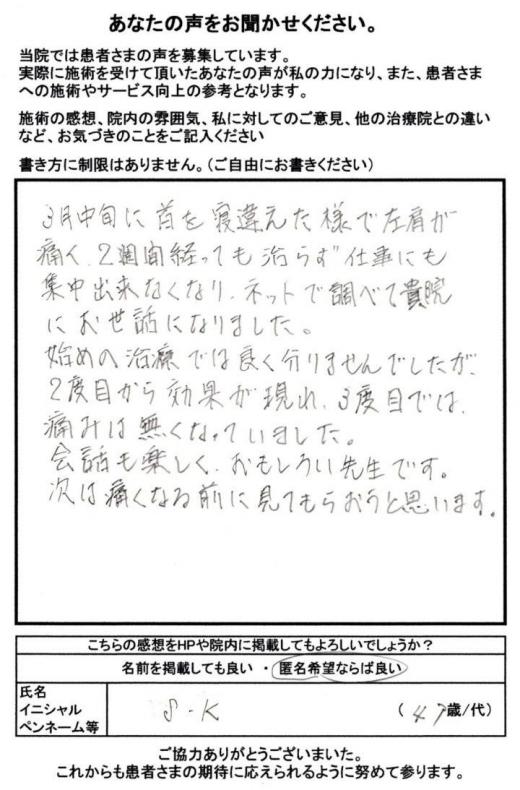 あなたの声をお聞かせください。
当院では患者さまの声を募集しています。
実際に施術を受けて頂いたあなたの声が私の力になり、また、患者さま
への施術やサービス向上の参考となります。
施術の感想、院内の雰囲気、私に対してのご意見、他の治療院との違い
など、お気づきのことをご記入ください
書き方に制限はありません。（ご自由にお書きください）
3月中旬に首を寝違えた様で左肩が
痛く、2週間経っても治らず仕事にも
集中出来なくなり、ネットで調べて貴院
にお世話になりました。
始めの治療では良く分りませんでしたが、
2度目から効果が現れ、3度目では、
痛みは無くなっていました。
会話も楽しく、おもしろい先生です。
次は痛くなる前に見てもらおうと思います。
こちらの感想をHPや院内に掲載してもよろしいでしょうか？
名前を掲載しても良い ・ 匿名希望ならば良い
氏名
イニシャル
ペンネーム等
S・K
（ 47歳/代）
ご協力ありがとうございまいた。
これからも患者さまの期待に応えられるように努めて参ります。